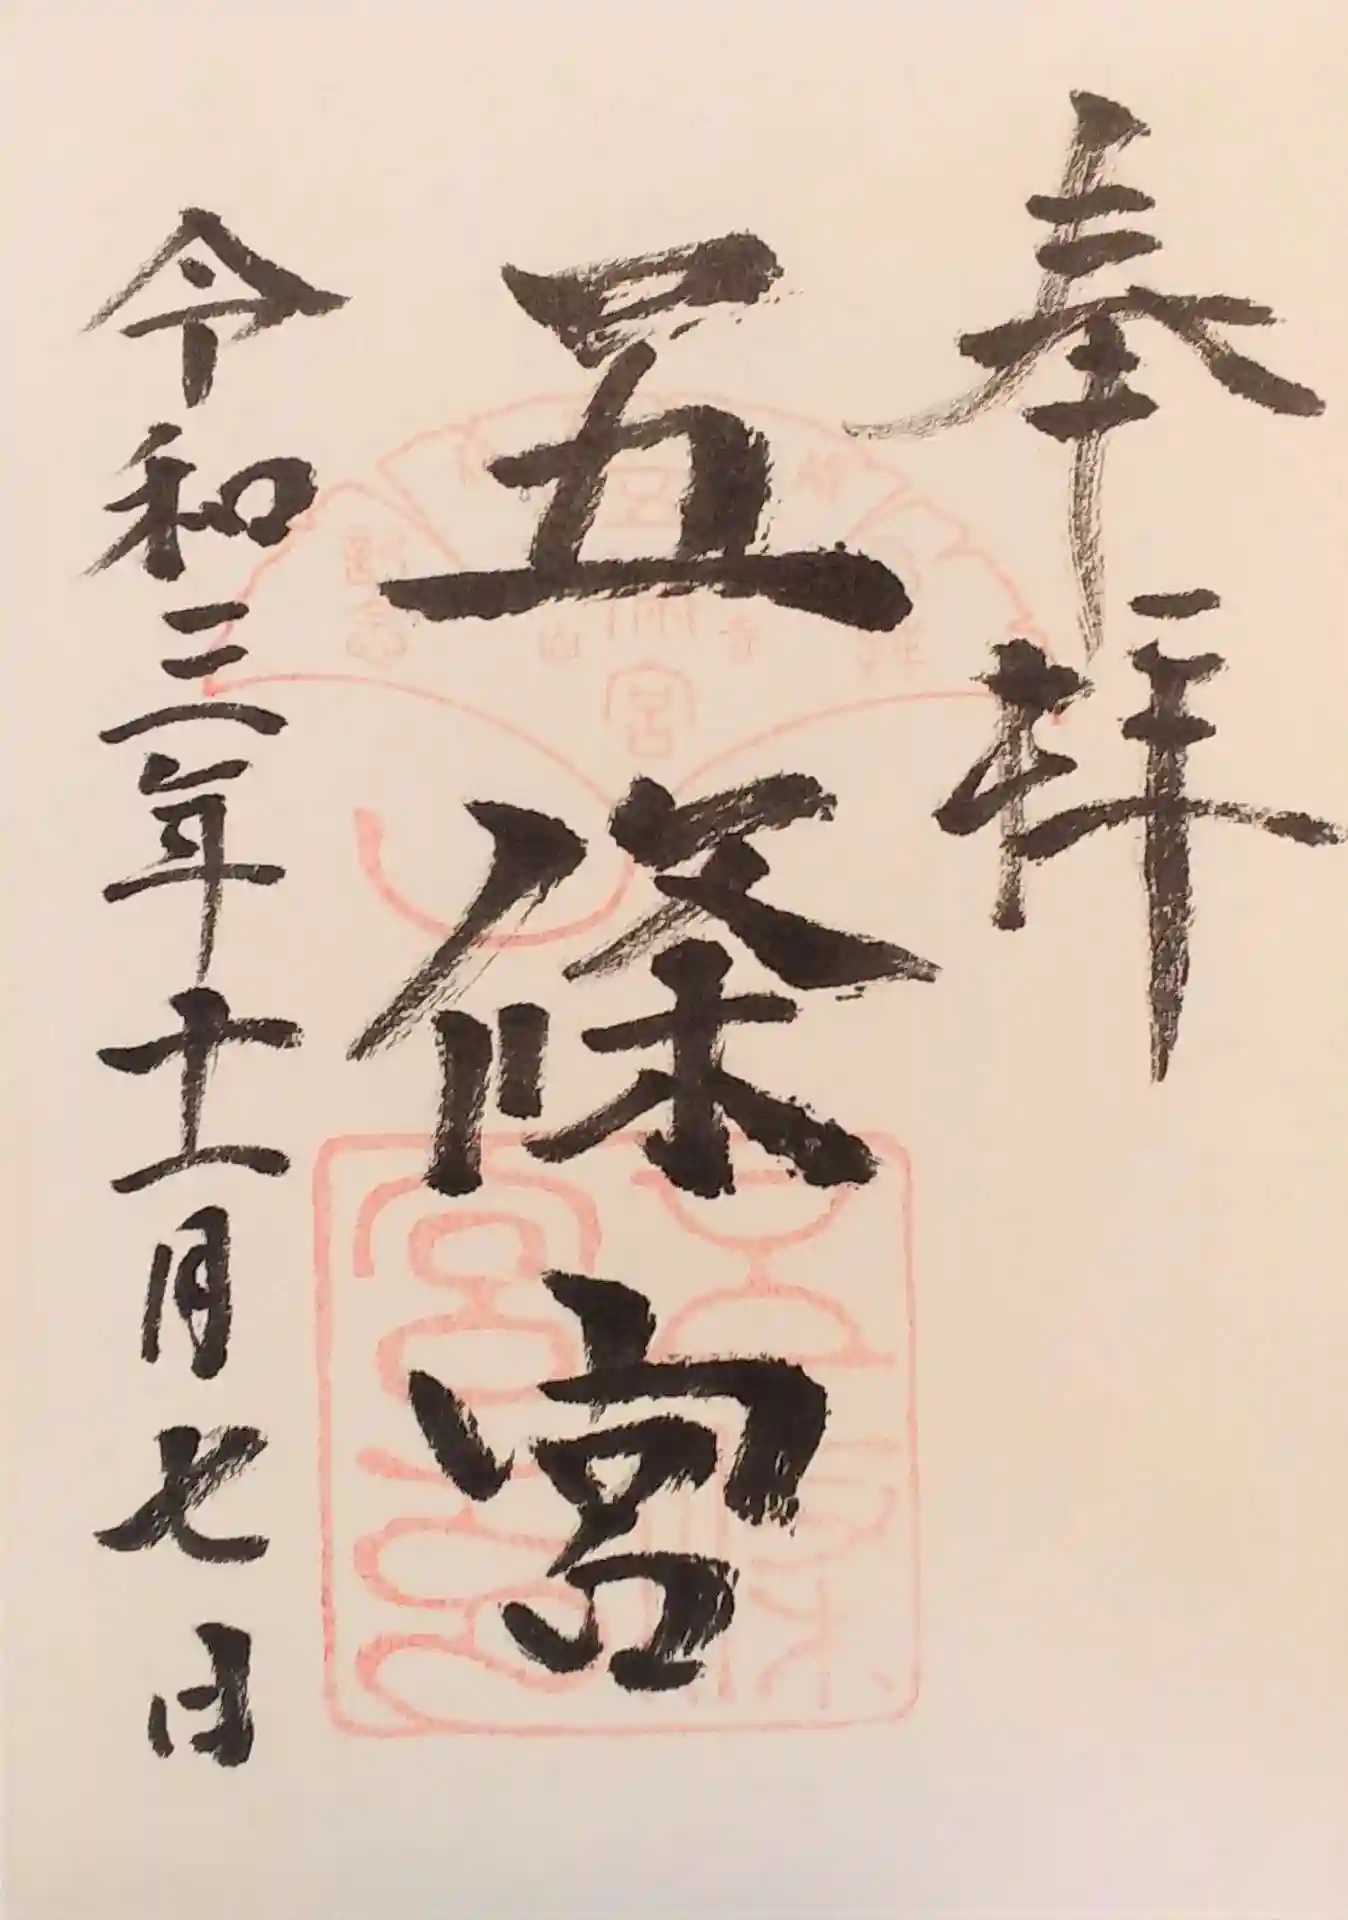 奉拝
五條宮
令和三年十一月七日